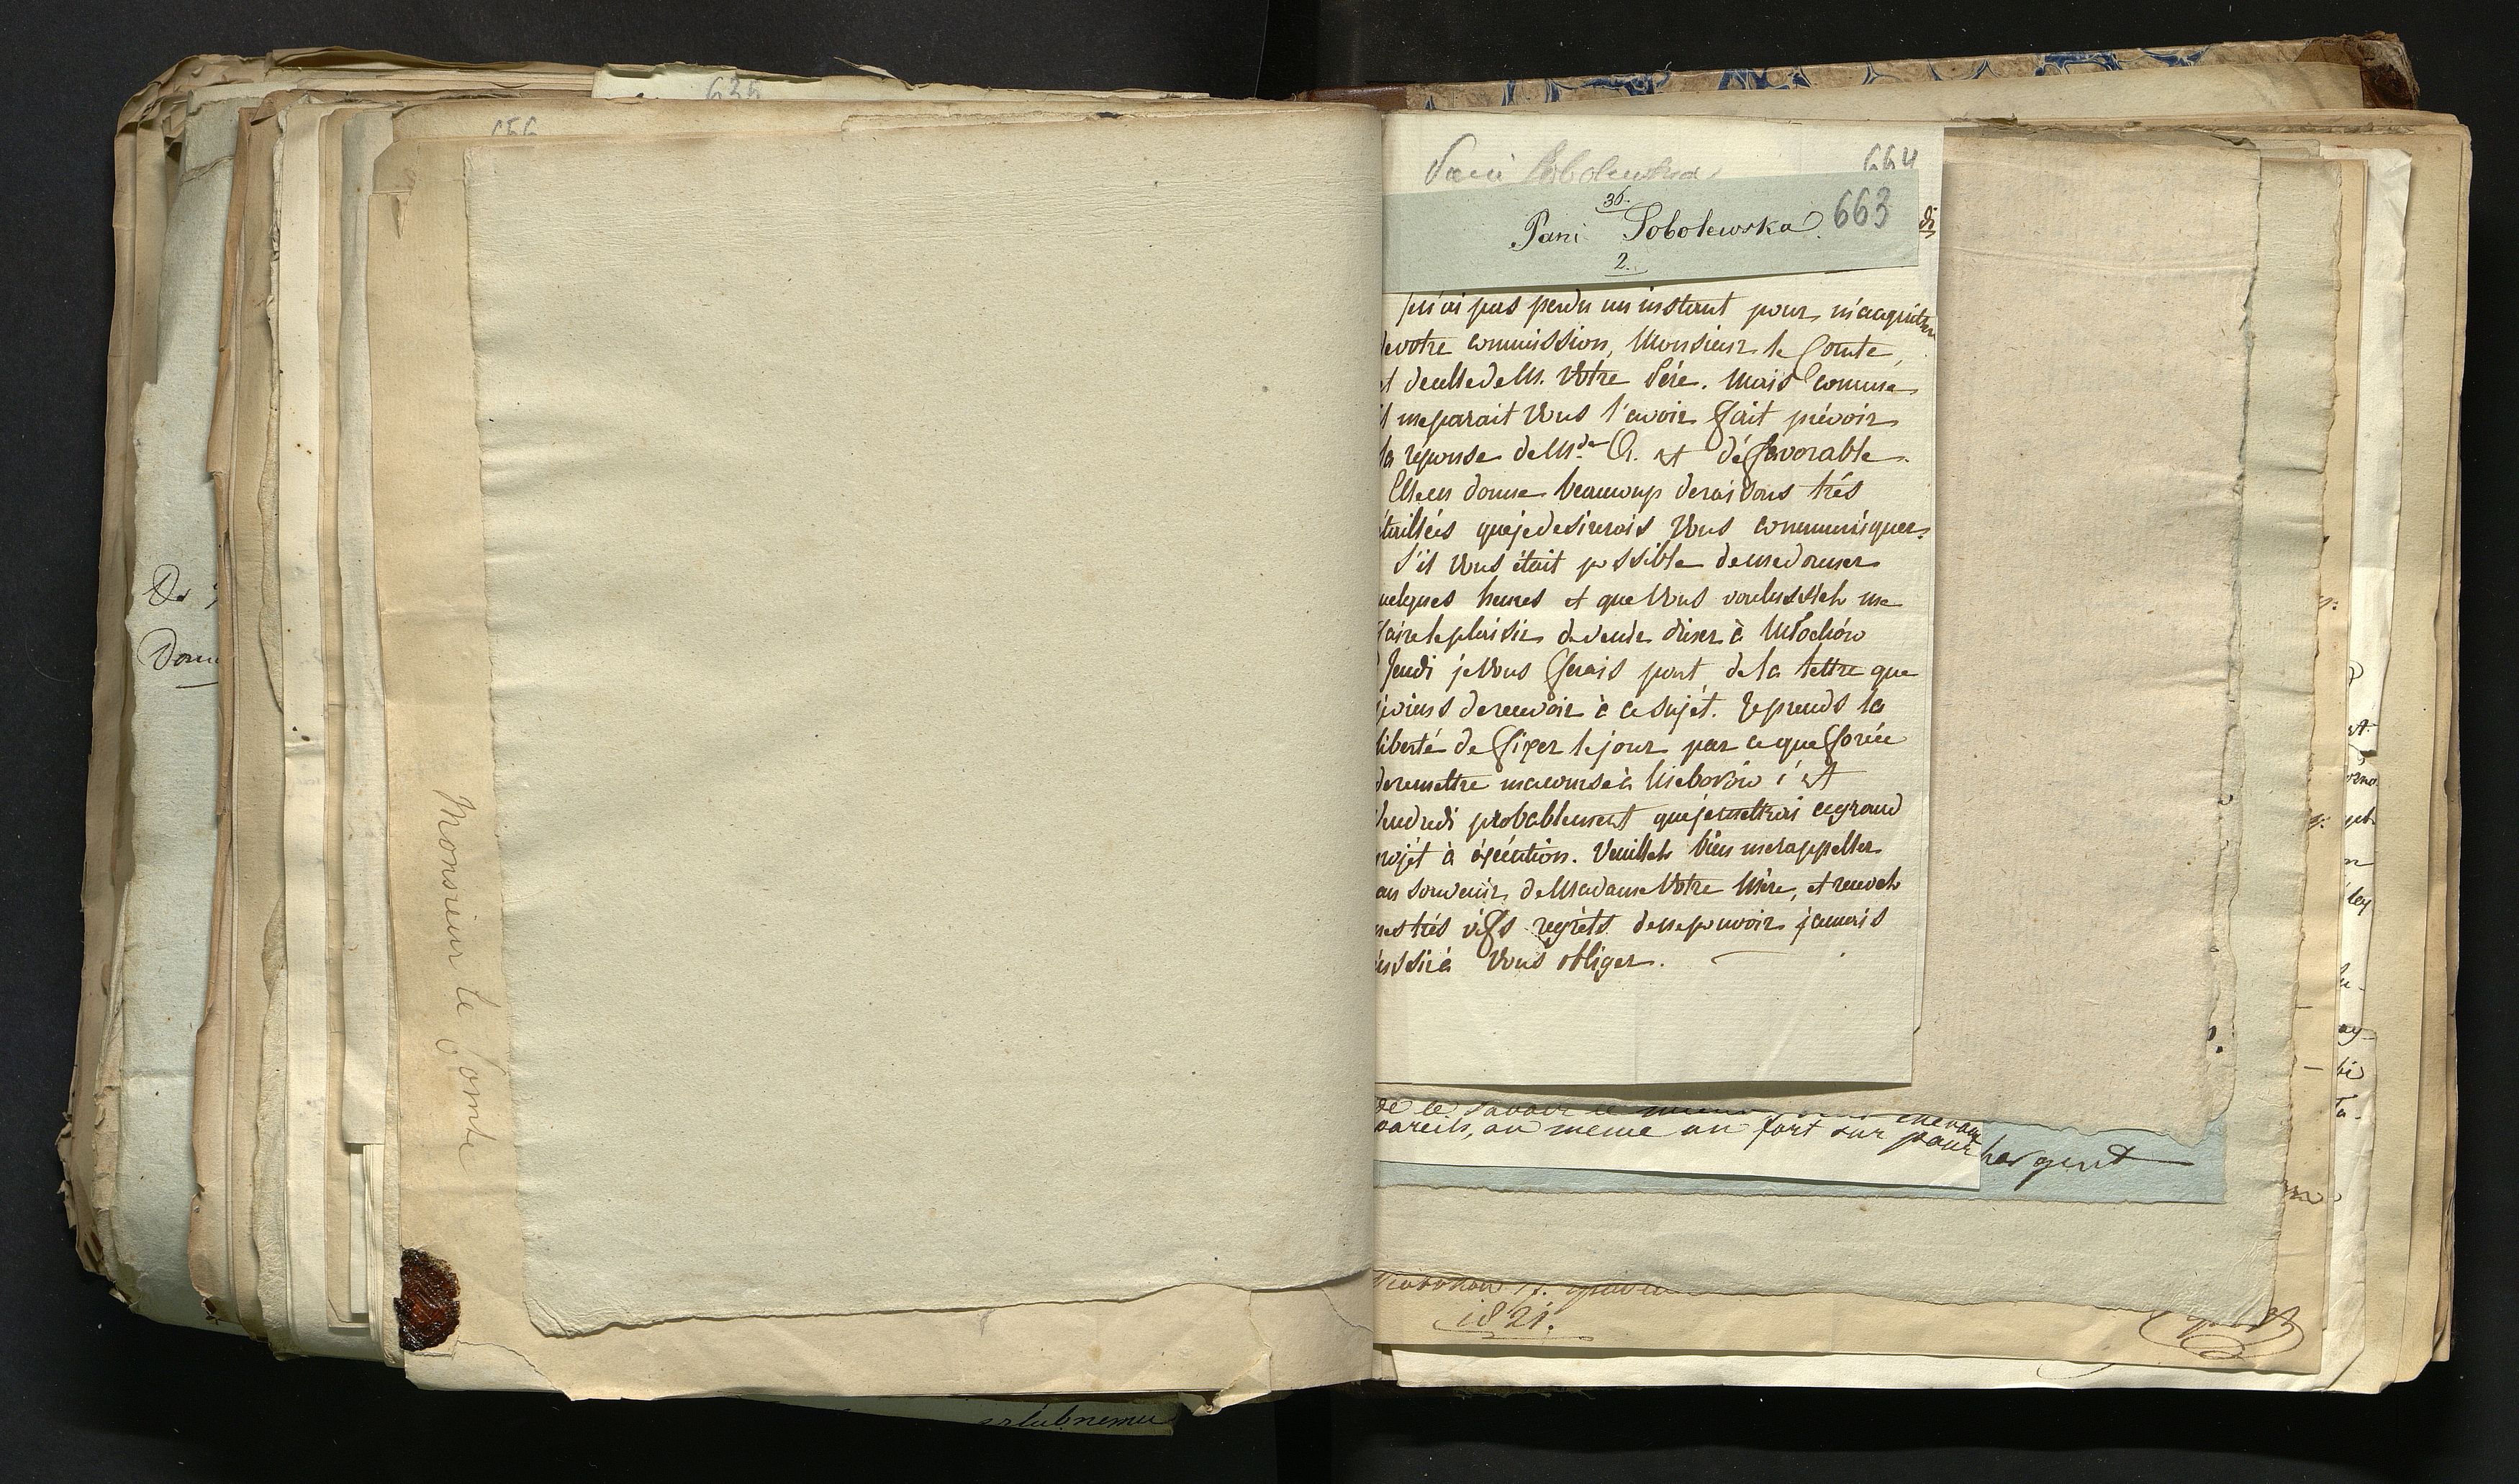 635
656
De
Donn
Monsieur le Comte
Pani Sobolewska
664
36.
Pani Sobolewska
663
2.
di
n'ai pas perdu un instant pour m'acquitter
de votre commission, Monsieur le Comte,
et de celle de M. Votre Père. Mais comme
il me parait Vous l'avoir fait prévoir
la réponse de Mde O. est défavorable.
Elle en donne beaucoup de raisons très
étaillées que je desirerois Vous communiquer.
S'il Vous était possible de me donner
uelques heures et que Vous voulussiéz me
faire le plaisir de venir diner à Młochów
Jeudi je Vous ferais part de la lettre que
je viens de recevoir à ce sujèt. Je prends la
liberté de fixer le jour par ce que forcée
de remettre ma course à Nieborów c'est
Vendredi probablement que je mettrai ce grand
rojèt à éxécution. Veuilléz bien me rappeller
au souvenir de Madame Votre Mère, et recevéz
mes très vifs regrèts de ne pouvoir jamais
éussir à Vous obliger.
de le savoir le mieux chevaux
pareils, au meme un fort sur pour
hargent
1821.
erlubnemu